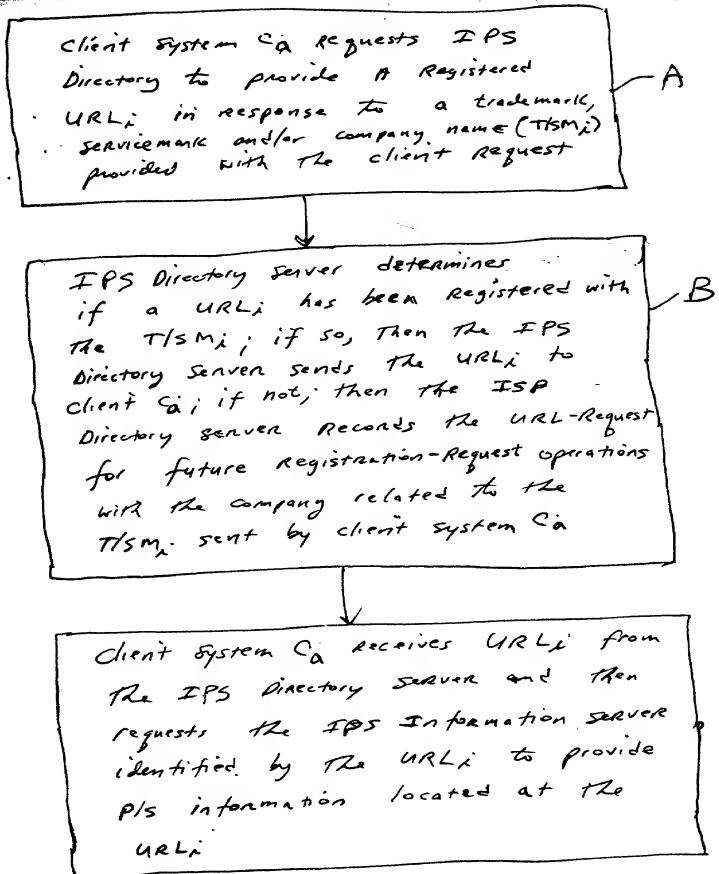 Client System Ca Requests IPS
Directory to provide A Registered
URLi in response to a trademark,
servicemark and/or company name (T/SMi)
provided with the client request
A
IPS Directory Server determines
if a URLi has been Registered with
the T/SMi; if so, then the IPS
Directory Server sends the URLi to
client Ca; if not, then the ISP
Directory server Records the URL-Request
for future Registration-Request operations
with the company related to the
T/SMi sent by client system Ca
B
Client System Ca Receives URLi from
the IPS Directory Server and then
requests the IPS Information Server
identified by the URLi to provide
P/S information located at the
URLi